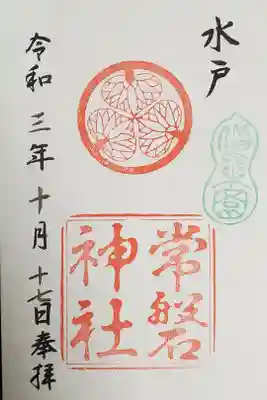 水戸
常磐
神社
令和三年十月十七日奉拝